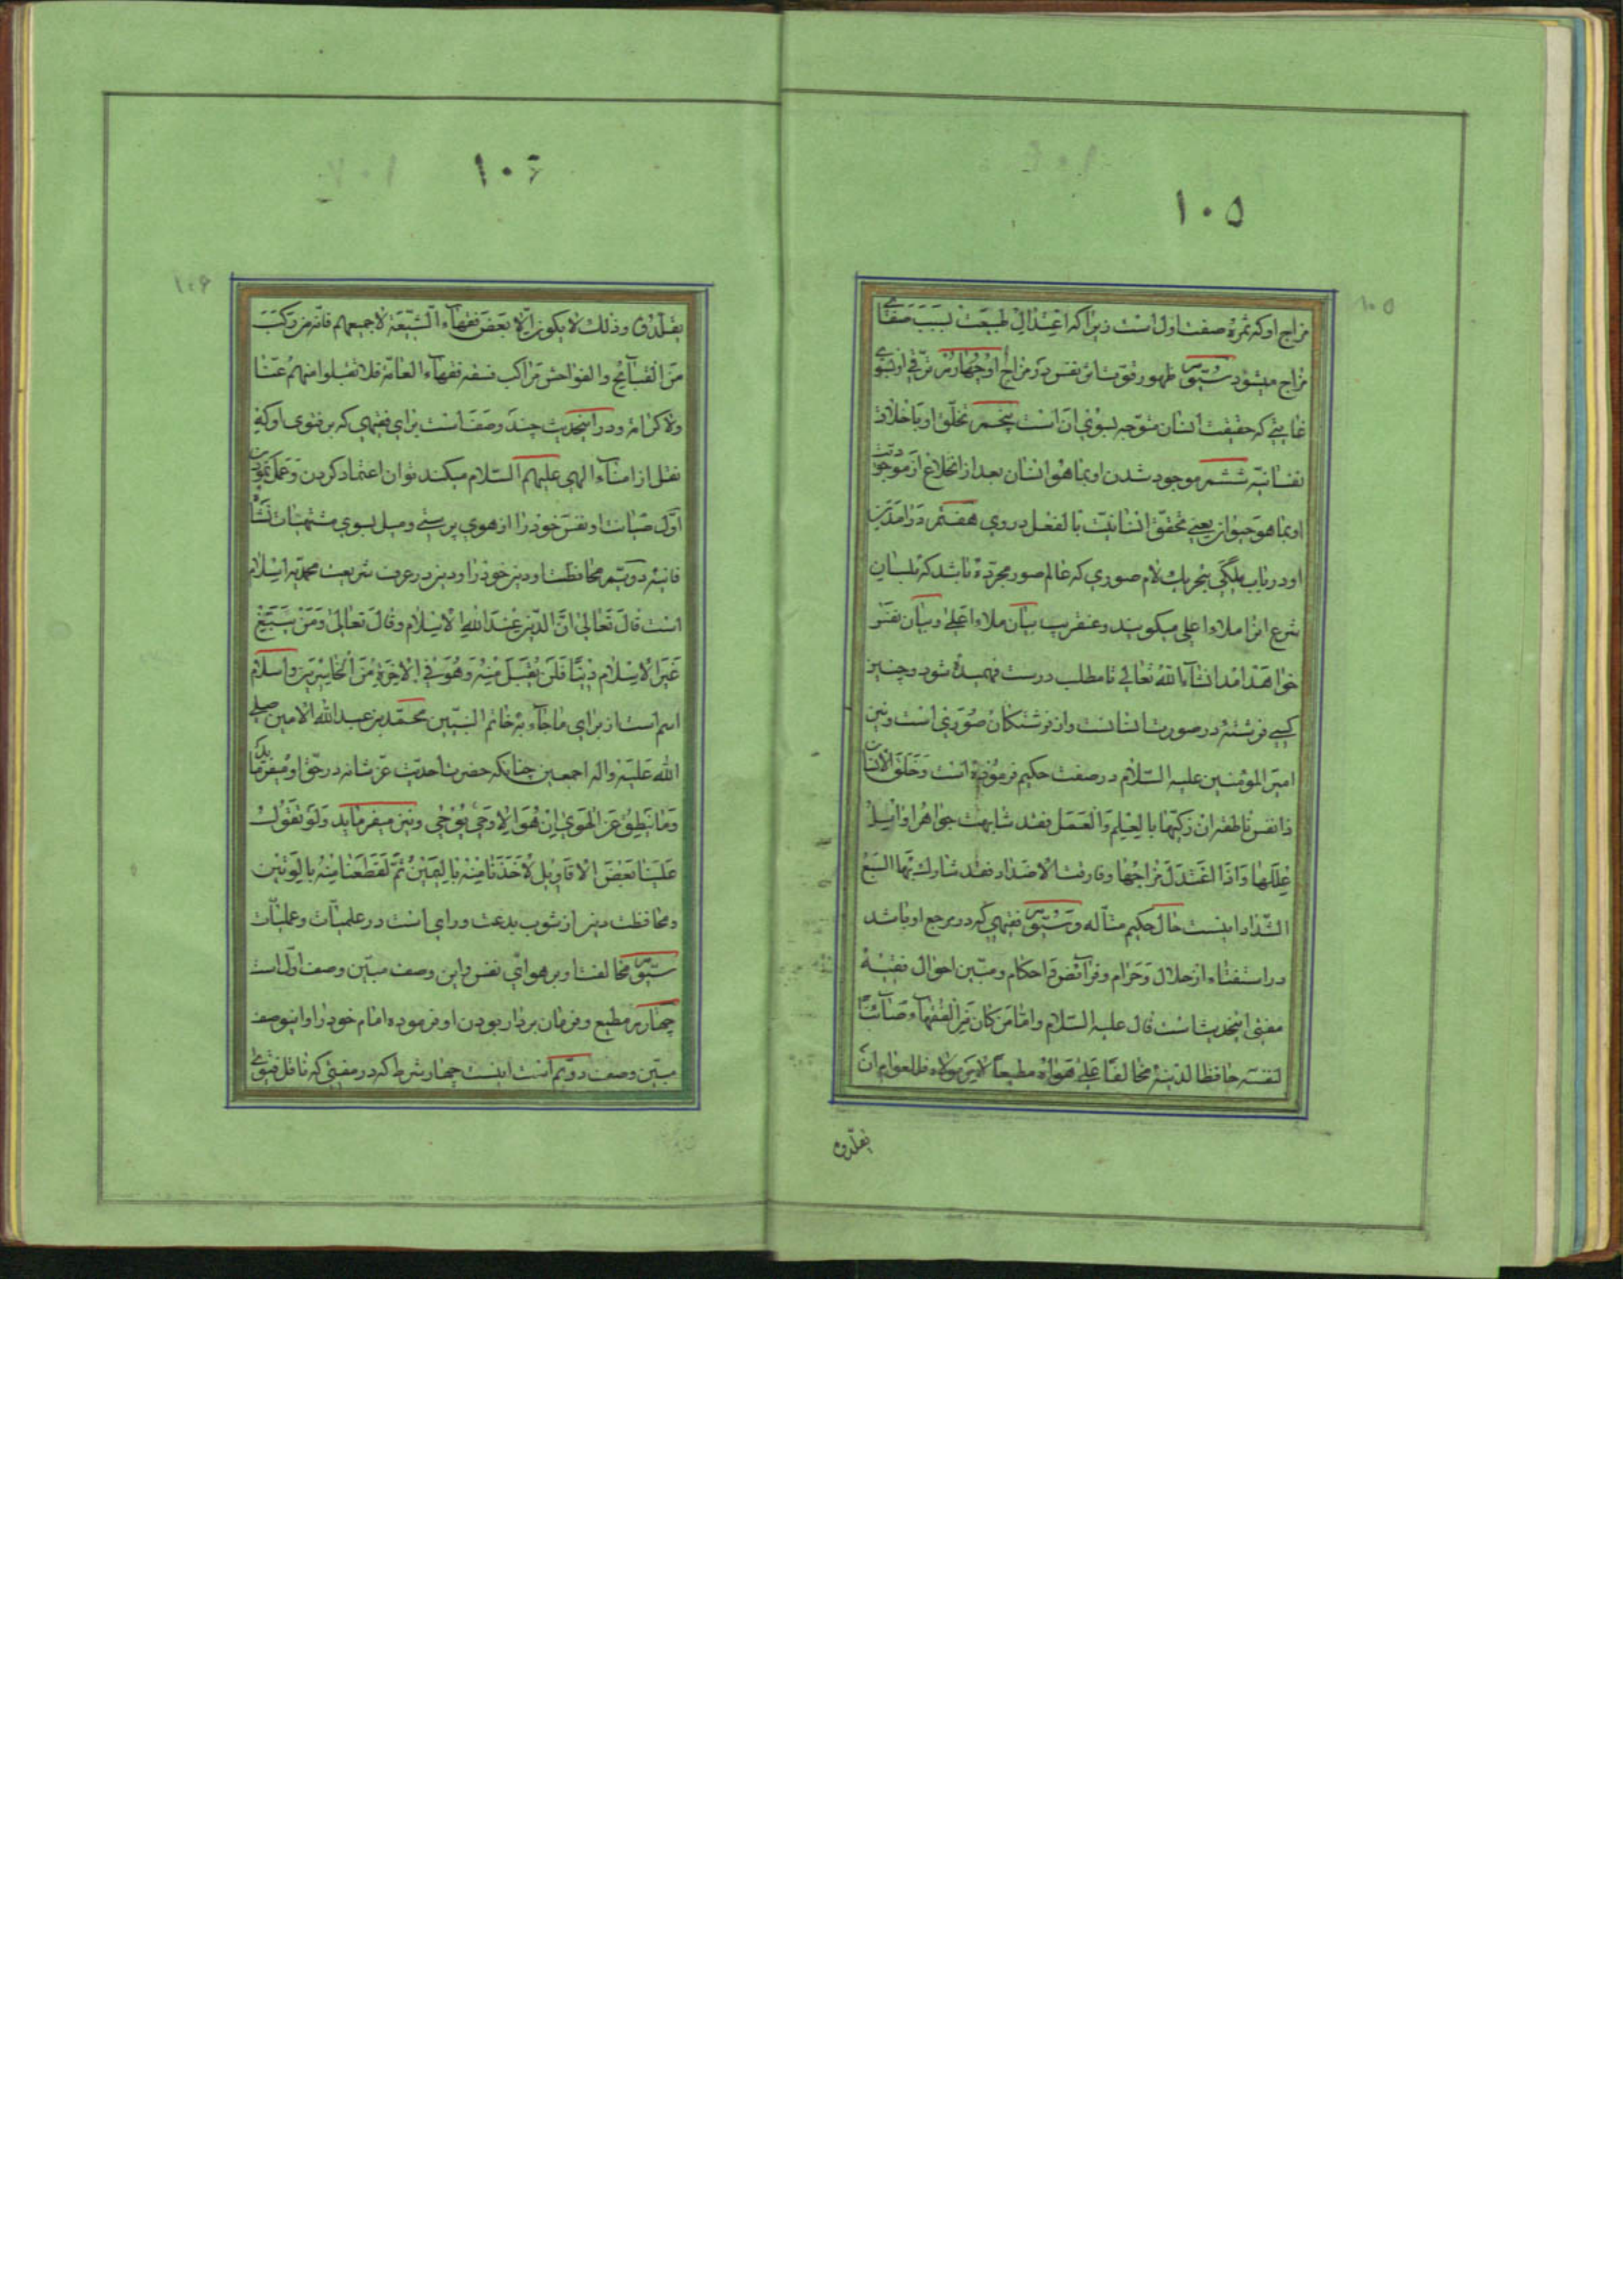 ١٠٥
مزاج او که ثمرهٔ صفت اول است زیرا که اعتدال طبیعت بسبب صفای
مزاج میشود سیّوم ظهور قوت اثر نفس در مزاج او چهارم ترقی او بسوی
غایتی که حقیقت انسان متوجه بسوی آن است پنجم تخلّق او باخلاق
نفسانیّه ششم موجود شدن او بما هو انسان بعد از انخلاع از موجودیّت
او بما هو حیوان یعنی تحقق انسانیّت بالفعل در وی هفتم درامدن
او در باب ملکی بتحریک لام صوری که عالم صور مجرّده باشد که بلسان
شرع انرا ملاء اعلی میکویند و عنقریب بیان ملاء اعلی و بیان نفس
خواهد امد انشاء الله تعالی تا مطلب درست فهمیده شود و چنین
کسی فرشته در صورت انسانست و از فرشتکان صوری است و نیز
امیر المؤمنین علیه السلام در صفت حکیم فرموده است و خلق الانسان
ذا نفس ناطقة ان زکّیها بالعلم و العمل فقد شابهت جواهر اوائل
عللها و اذا اعتدل مزاجها و فارقت الاضداد فقد شارک بها السبع
الشداد اینست حال حکیم متألّه و سیّوم فقیهی که در مرجع او باشد
در استفتاء از حلال و حرام و فرائض و احکام و مبیّن احوال فقیه
مفتی اینحدیث است قال علیه السلام و اما من کان من الفقهاء صائناً
لنفسه حافظا لدینه مخالفاً علی هواه مطیعاً لامر مولاه فللعوام ان
یقلّدوه
١٠٦
یقلّدوه و ذلک لا یکون الّا بعض فقهاء الشیعة لا جمیعهم فانّه من رکب
من القبایح و الفواحش مراکب فسقه فقهاء العامّة فلا تقبلوا منهم عنّا
ولا کرامة و در اینحدیث چند وصف است برای فقیهی که بر فتوی او که
نقل از امناء الهی علیهم السلام میکند توان اعتماد کردن و عمل نمودن
اول صیانت او نفس خود را از هوی پرستی و میل بسوی مشتهیات نشأه
فانیه دویّم محافظت او دین خود را و دین در عرف شریعت محمدیّه اسلام
است قال تعالی انّ الدین عند الله الاسلام و قال تعالی و من یبتغ
غیر الاسلام دیناً فلن یقبل منه و هو فی الاخرة من الخاسرین و اسلام
اسم است از برای ما جاء به خاتم النبیّین محمّد بن عبد الله الامین صلی
الله علیه و اله اجمعین چنانکه حضرت احدیّت عزّ شانه در حقّ او میفرماید
و ما ینطق عن الهوی ان هو الا وحی یوحی و نیز میفرماید و لو تقوّل
علینا بعض الاقاویل لاخذنا منه بالیمین ثمّ لقطعنا منه بالوتین
و محافظت دین از شوب بدعت و رای است در علمیّات و عملیّات
سیّوم مخالفت او بر هوای نفس و این وصف مبیّن وصف اول است
چهارم مطیع و فرمان بردار بودن او فرموده امام خود را و اینوصف
مبیّن وصف دویّم است اینست چهار شرط که در مفتی که ناقل فتوی